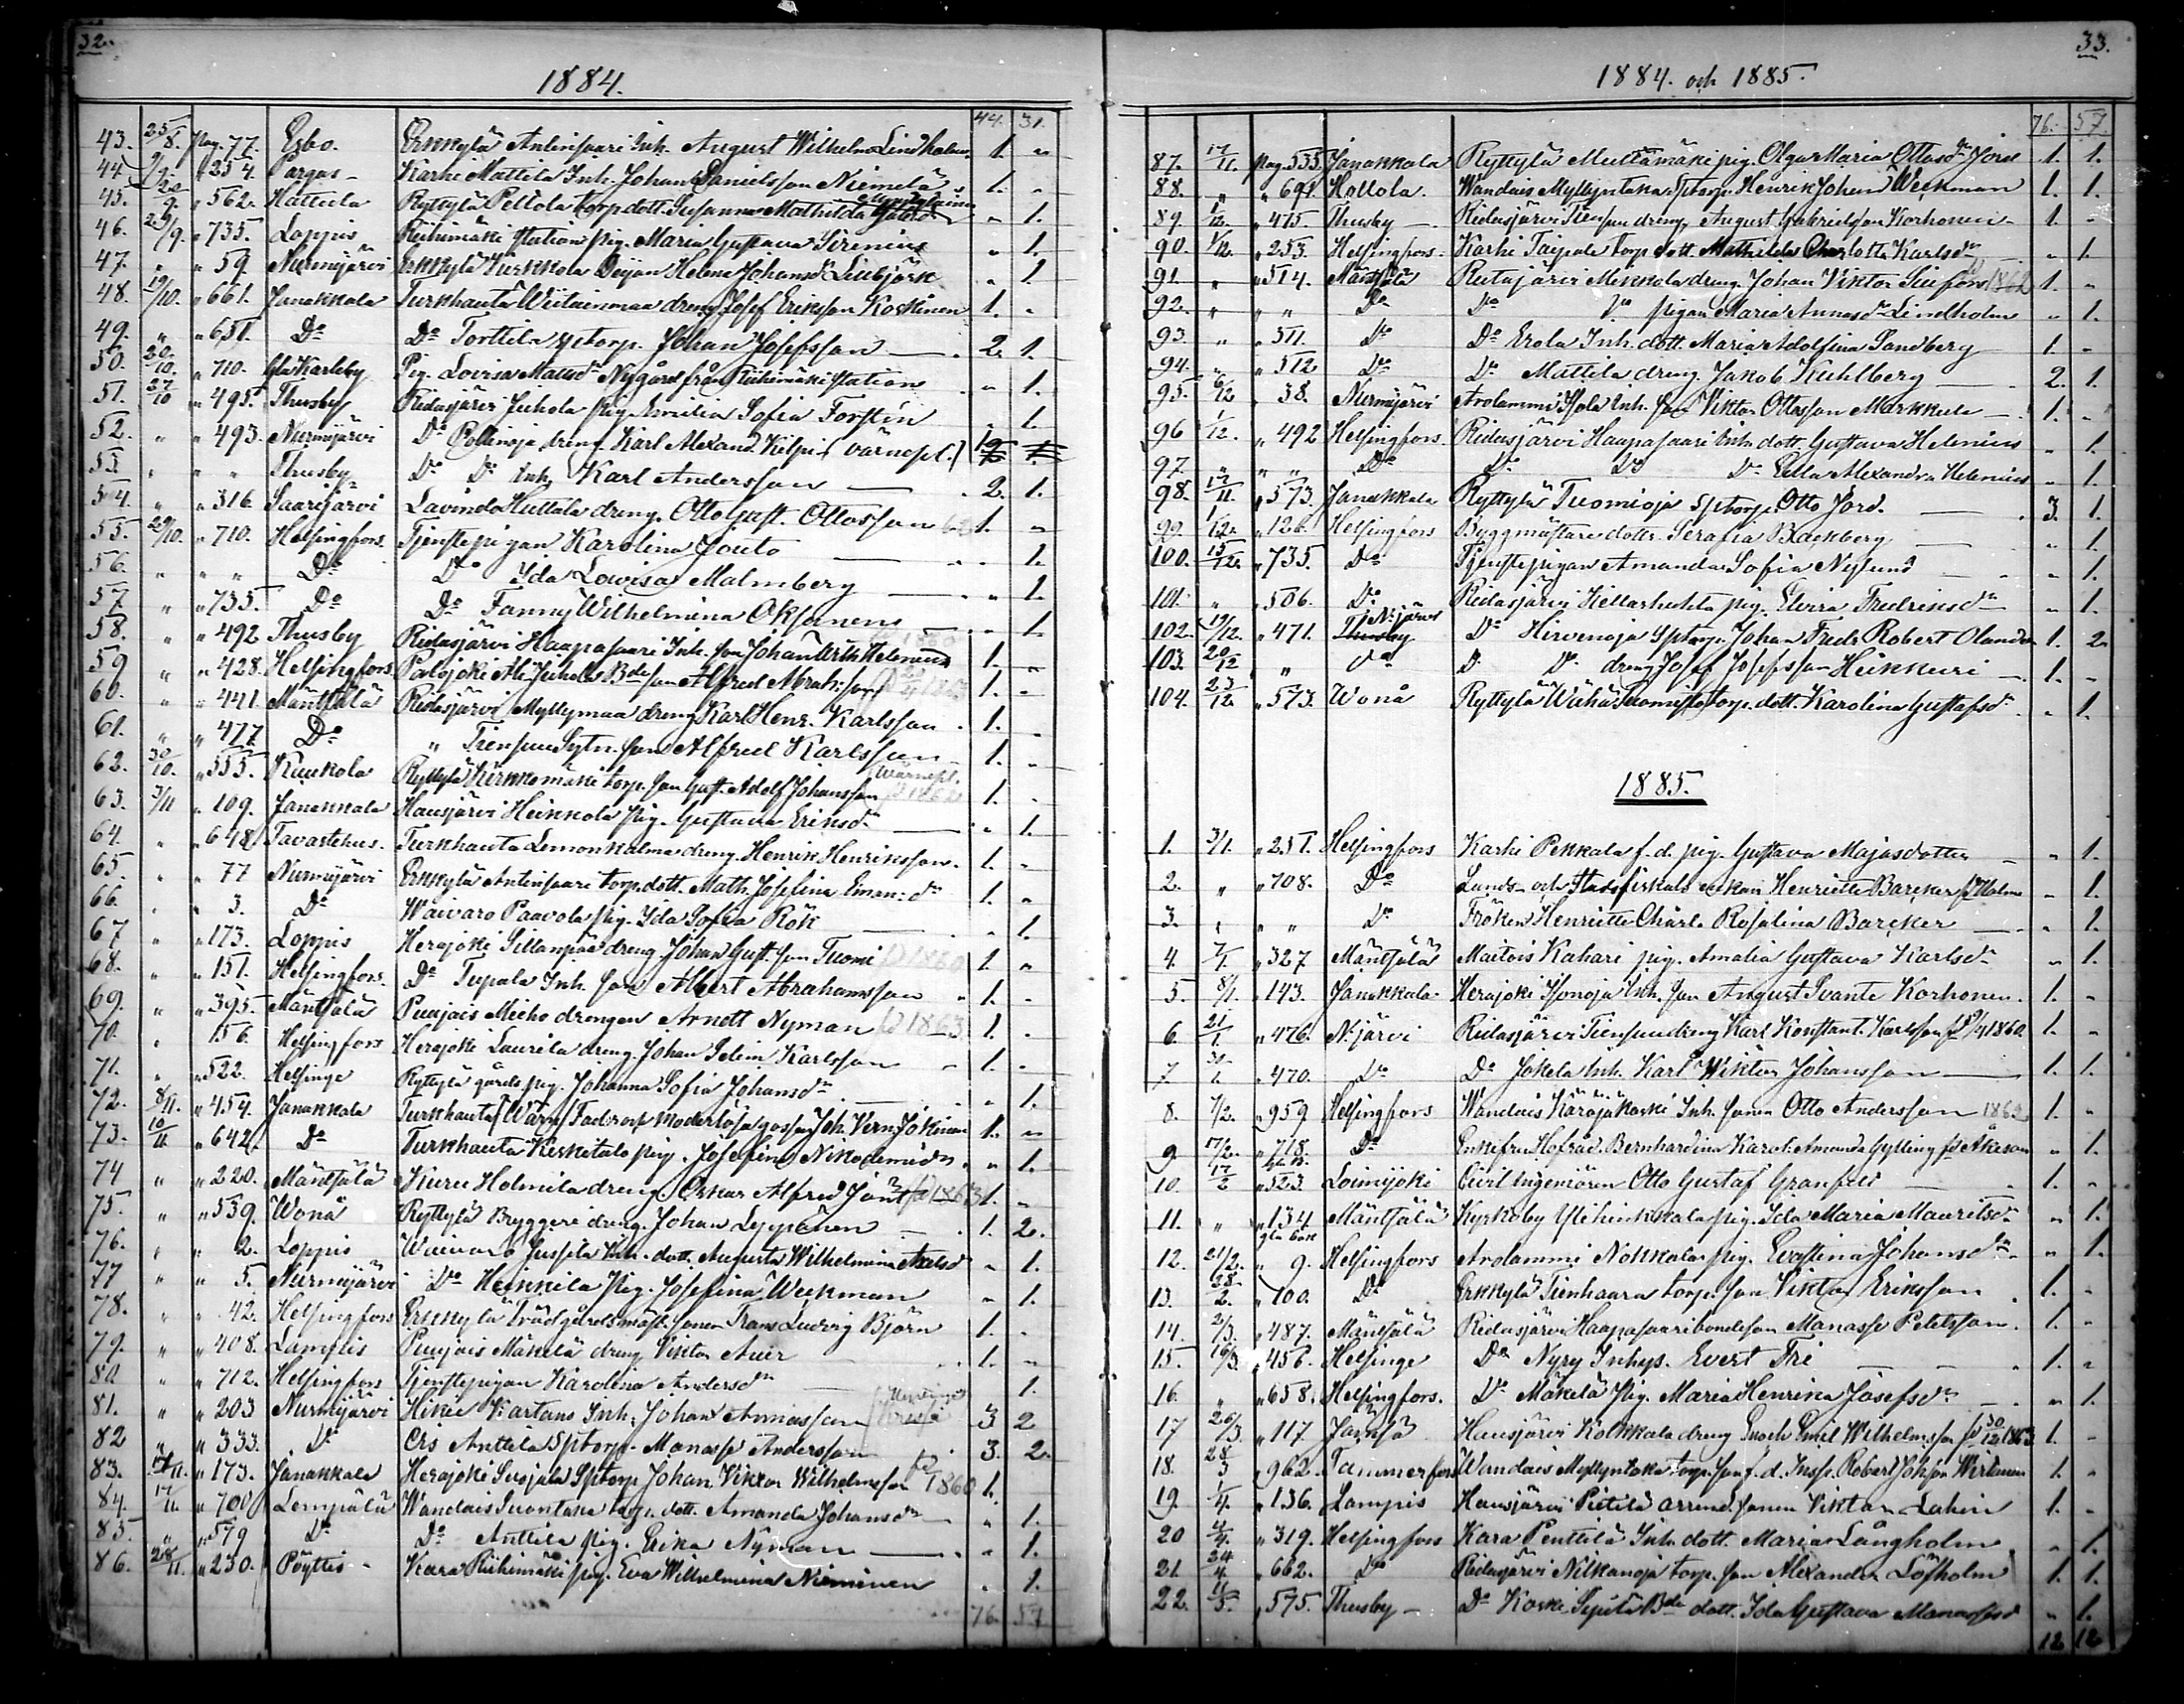 32.
1884.
44. 31.
43. 25/8. Pag. 77. Esbo. Erkkylä Antinsaari Inh. August Wilhelm Lindholm 1. "
44. 2/9. " 254. Pargas Karhi Mattila Inh. Johan Danielsson Niemelä 1. "
45. " 562. Hattula Ryttylä Pellola torp.dott. Susanna Mathilda " 1.
46. 29/9. " 735. Loppis Riihimäki Station pig. Maria Gustava Sirenius " 1.
47. " " 59. Nurmijärvi Erkkylä Helena Johansdr " 1
48. 19/10. " 661. Janakkala Turkhauta Wiitainmaa dreng Josef Eriksson Koskinen 1. "
49. " " 651. Do Do Torttila sptorp. Johan Josefsson 2. 1.
50. 20/10. " 710. Gla Karleby Pig. Lovisa Mattsdr Nygård från Riihimäki Station " 1.
51. 27/10 " 495. Thusby Ridasjärvi Juhola pig. Emilia Sofia Forstén " 1.
52. " " 493. Nurmijärvi Do dreng. Karl Alexand. Kilpi (värnepl.)
53. " " " Thusby Do Do Inh. Karl Andersson 2. 1.
54. " " 316. Saarijärvi Lavinto Huttala dreng. Otto Gust. Ottosson 1. "
55. 29/10. " 710. Helsingfors. Tjenstepigan Karolina Jouto " 1.
56. " " " Do Do Ida Lowisa Malmberg " 1.
57 " " 735. Do Do Fanny Wilhelmina Oksanen " 1.
58. " " 492 Thusby Ridasjärvi Haapasaari Inh. son Johan Helenius 1. "
59 " " 428. Helsingfors Palojoki Ali Juhola Bde son Alfred Abrah:son 1. "
60. " " 441. Mäntsälä Ridasjärvi Myllymaa dreng Karl Henr. Karlsson 1. "
61. " " 477 Do " Tiensuu Sytn. son Alfred Karlsson 1. "
62. 30/10. " 555. Ryttylä Kirkkomäki torp. son Gust. Adolf Johansson 1. "
63. 3/11 " 109. Janakkala Hausjärvi Heikkola pig. Gustava Eriksdr " 1.
64. " " 648. Tavastehus. Turkhauta Lemonkalma dreng. Henrik Henriksson. 1. "
65. " " 77 Nurmijärvi Erkkylä Antinsaari torp.dott. Math. Josefina Eman:dr 1. "
66. " " 3. Do Waivaro Paavola pig. Ida Sofia Rök " 1.
67 " " 173. Loppis Herajoki Sillanpää dreng Johan Gust. son Tuomi 1860 1. "
68. " " 151. Helsingfors. Do Tupala Inh. son Albert Abrahamsson 1. "
69. " " 395. Mäntsälä Puujais Mieho drengen Arnott Nyman 1863 1. "
70. " 156. Helsingfors Herajoki Laurila dreng. Johan Selim Karlsson 1. "
71. " " 522. Helsinge Ryttylä gårds pig. Johanna Sofia Johansdr " 1.
72. 8/11. " 454. Janakkala Turkhauta Joh. Vern. Jokinen 1. "
73. 10/11 " 642. Do Turkhauta Keskitalo pig. Josefina Nikodemidr " 1.
74 " " 220. Mäntsälä Kuru Holmila dreng. Oskar Alfred 1863 1. "
75. " " 539. Wånå Ryttylä Bryggeri dreng. Johan Leppänen 1. 2.
76. " " 2. Loppis Waivaro Jussila Inh. dott. Augusta Wilhelmina Axelsd " 1.
77 " " 5. Nurmijärvi Do Heikkilä pig. Josefina Weckman " 1.
78. " " 42. Helsingfors Erkkylä Trädgårdsmäst. sonen Frans Ludvig Björn 1. "
79. " " 408. Lampis Puujais Mäkelä dreng Viktor Auer 1. "
80 " " 712. Helsingfors Tjenstepigan Karolina Andersdr 1.
81. " " 203 Nurmijärvi Hikiä Kartano Inh. Johan Annasson 3 2
82 " " 333. Do Ois Anttila Sptorp. Manasse Andersson 3. 2.
83. 17/11. " 173. Janakkala Herajoki Suojala Sptorp Johan Viktor Wilhelmsson 1860 1.
84. 17/11. " 700 Lempälä Wandais Suontaka torp. dott. Amanda Johansdr " 1.
85. " " 579 Do Do Anttila pig. Erika Nyman " 1.
86. 28/11. " 230. Pöyttis Kara Riihimäki pig. Eva Wilhelmina Nieminen " 1.
76. 57
33.
1884. och 1885.
76. 57.
87. 17/11. Pag. 535. Janakkala Ryttylä Multamäki pig. Olga Maria Ottosdr Jord 1. 1.
88. " " 691. Hollola. Wandais Myllyntaka Sptorp. Henrik Johan Weckman 1. 1.
89. 1/12. " 475 Thusby Ridasjärvi Tiensuu dreng. August Gabrielsson Korhonen 1. "
90. 1/12. " 253. Helsingfors. Karhi Taipale torp dott. Mathilda Charlotta Karlsdr " 1.
91. " " 514. Mäntsälä Ridasjärvi Mikkola dreng. Johan Viktor 1862 1. "
92. " " " Do Do Do pigan Maria Annasdr Lindholm " 1.
93. " " 511. Do Do Erola Inh. dott. Maria Adolfina Sandberg 1. "
94. " " 512 Do Do Mattila dreng. Jakob Kuhlberg 2. 1.
95. 6/12 " 38. Nurmijärvi Arolammi Isola Inh. son Viktor Ottosson Markkula 1. "
96 1/12. " 492 Helsingfors. Ridasjärvi Haapasaari Inh. dott. Gustava Helenius " 1.
97. " " " Do Do Do Do Edla Alexandra Helenius " 1.
98. 17/11. " 573. Janakkala Ryttylä Tuomioja Sptorp. Otto Jord. 3. 1.
99. 1/12. " 126. Helsingfors Byggmästare dottr. Serafia Backberg " 1.
100. 15/12. " 735. Do Tjenstepigan Amanda Sofia Nylund " 1.
101. " " 506. Do Ridasjärvi Kellarhuhta pig. Elvira Fredriksdr " 1.
102. 19/12. " 471. Thusby N:järvi Do Hirvenoja Sptorp. Johan Fredr. Robert Olander 1. 2.
103. 20/12 " " Do D. Do dreng Josef Josefsson Heikkuri 1. "
104. 23/12 " 573. Wånå Ryttylä torp. dott. Karolina Gustafsdr " 1.
1885.
1. 3/1. " 251. Helsingfors Karhi Pekkala f. d. pig. Gustava Majasdotter " 1.
2. " " 708. Do Lands- och Stadsfiskals enkan Henriette Barcker f. Holm " 1.
3. " " " Do Fröken Henriette Charl. Rosalina Barcker " 1.
4. 7/1. " 327 Mäntsälä Maitois Kahari pig. Amalia Gustava Karlsdr " 1.
5. 8/1. " 143. Janakkala Herajoki Isonoja Inh. son August Svante Korhonen. 1. "
6. 21/1 " 476. N:järvi Ridasjärvi Tiensuu dreng Karl Konstant. Karlsson 1860. 1. "
7 30/1. " 470. Do Do Jokela Inh. Karl Wiktor Johansson 1. 1.
8. 7/2. " 959. Helsingfors Wandais Käräjäkoski Inh. sonen Otto Andersson 1862 1. "
9. 17/2. " 718. Do Enkefru Hofråd. Bernhardina Karol. Amanda Gylling f. Åkeson " 1.
10. 17/2 " 523. Loimijoki Civil Ingeniören Otto Gustaf Granfelt 1. "
11. " " 134 Mäntsälä Kyrkoby Ylihinkkala pig. Ida Maria Mauritsdr " 1.
12. 21/2. " 9. Helsingfors Arolammi Nokkala pig. Evastina Johansdr " 1.
13. 28/2. " 100. Do Erkkylä Tienhaara torp. son Viktor Eriksson 1. "
14. 2/3. " 487. Mäntsälä Ridasjärvi Haapasaari bondeson Manasse Petersson. 1. "
15. 16/3. " 456. Helsinge Do Nyry Inhys. Evert Fri 1. "
16. " " 658. Helsingfors. Do Mäkelä pig. Maria Henrika Josefsdr " 1.
17 26/3. " 117 Jämsä Hausjärvi Kolkkala dreng Enoch Emil Wilhelmsson 30/12 1863 1. "
18. 28/3 " 962. Tammerfors Wandais Myllyntaka torp. son f. d. Insp. Robert Johsson Wirkman 1. "
19. 1/4. " 136. Lampis Hausjärvi Pietilä arrend. sonen Viktor Lahin 1. "
20 4/4. " 319. Helsingfors Kara Penttilä Inh. dott. Maria Långholm " 1.
21. 24/4. " 662. Do Ridasjärvi Nilkanoja torp. son Alexander Löfholm 1. 1.
22. 11/5. " 575. Thusby Do Koski Sepälä Bde dott. Ida Gustava Manassesd " 1.
12 12